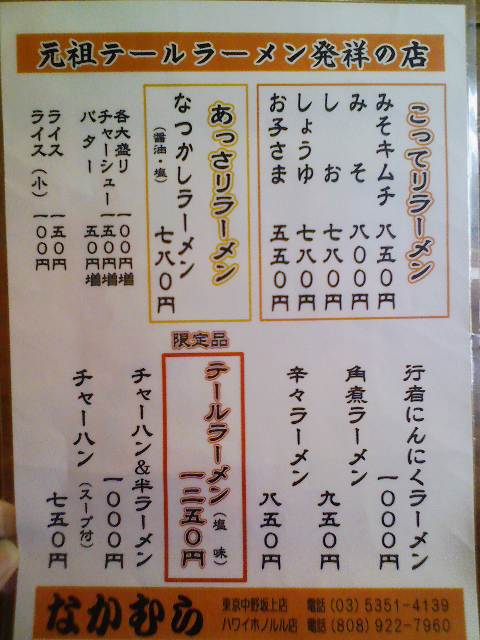 元祖テールラーメン発祥の店
こってりラーメン
みそキムチ 八五〇円
みそ 八〇〇円
しお 七八〇円
しょうゆ 七八〇円
お子さま 五五〇円
あっさりラーメン
なつかしラーメン 七八〇円
(醤油・塩)
各大盛り 一〇〇円増
チャーシュー 一五〇円増
バター 五〇円増
ライス 一五〇円
ライス(小) 一〇〇円
行者にんにくラーメン 一〇〇〇円
角煮ラーメン 九五〇円
辛々ラーメン 八五〇円
限定品
テールラーメン(塩味) 一二五〇円
チャーハン&半ラーメン 一〇〇〇円
チャーハン(スープ付) 七五〇円
なかむら
東京中野坂上店 電話(03)5351-4139
ハワイホノルル店 電話(808)922-7960